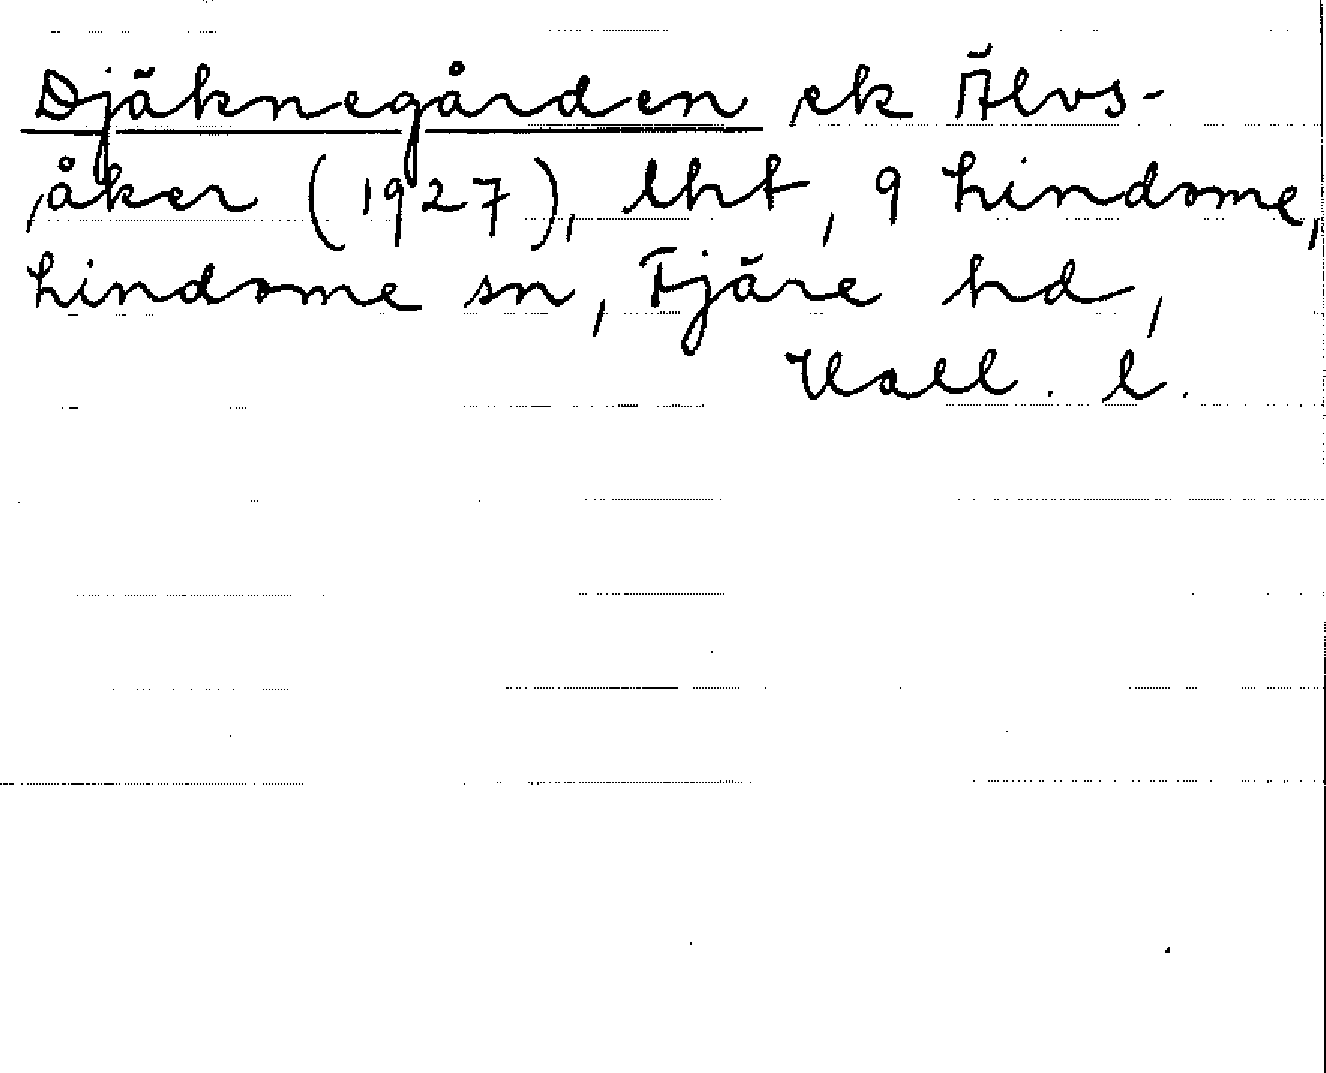 Djäknegården ek Älvs-
åker (1927), lht, 9 Lindome,
Lindome sn, Fjäre hd,
Hall. l.